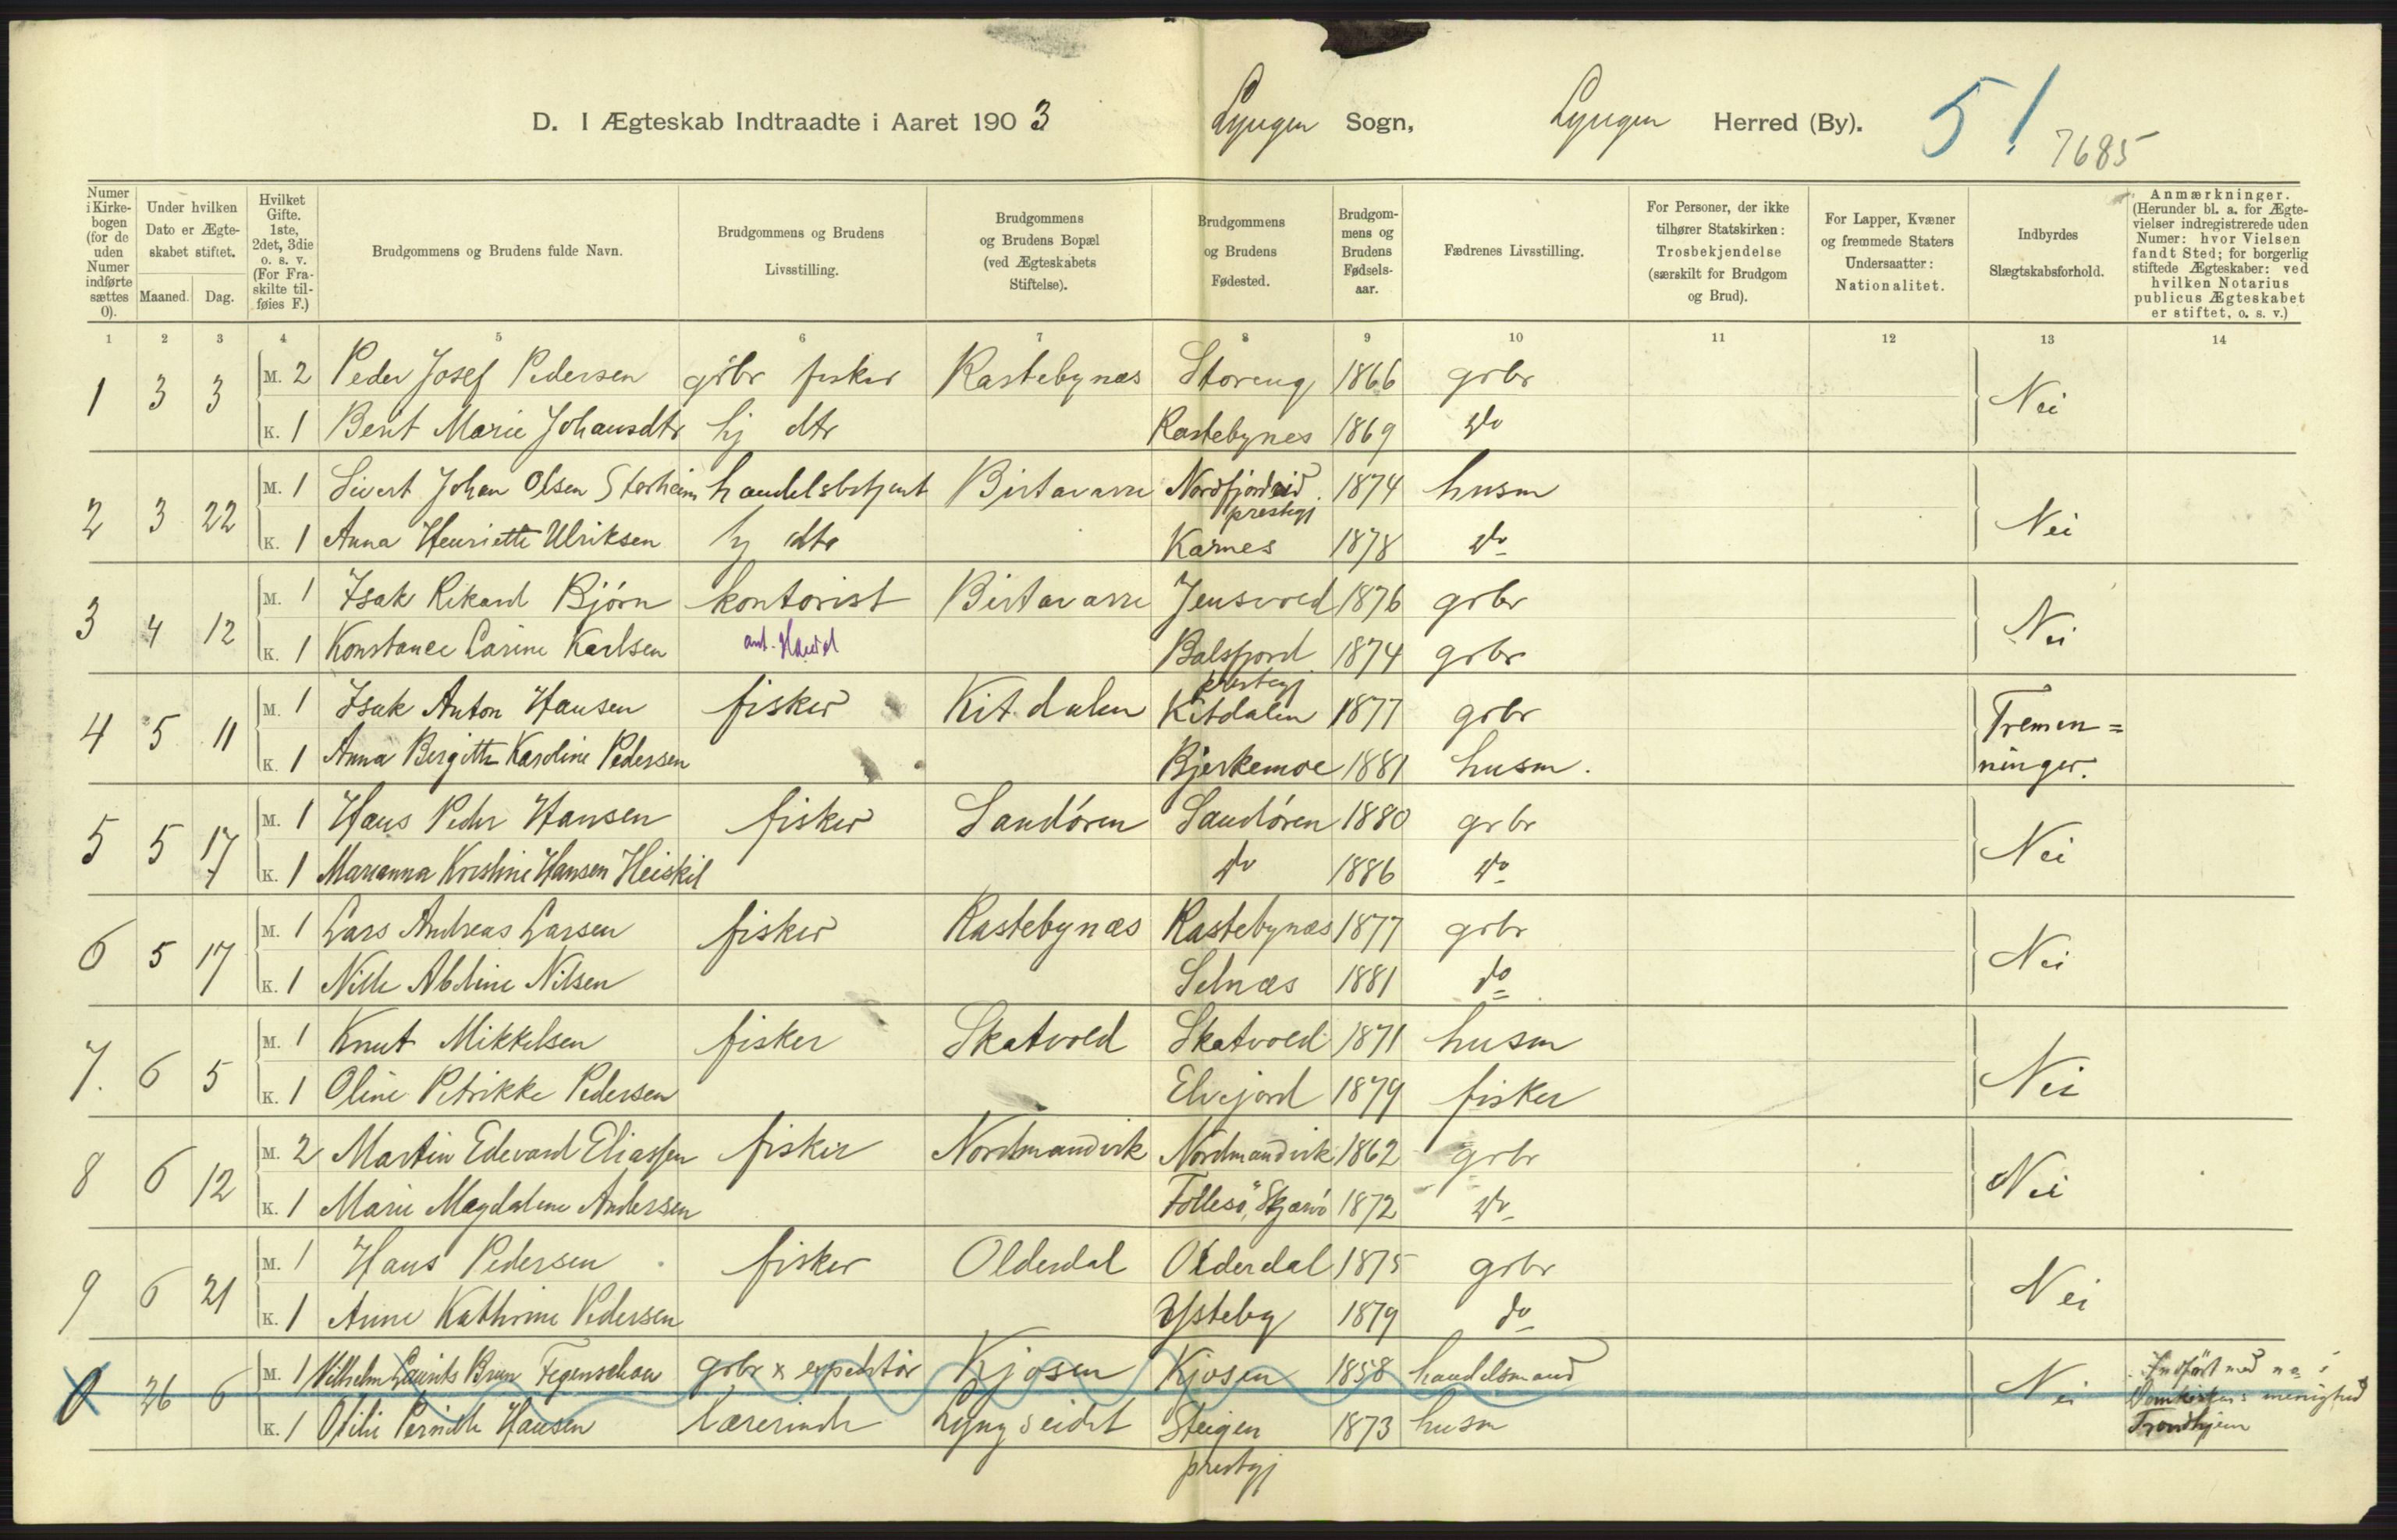 D. I Ægteskab Indtraadte i Aaret 1903 Lyngen Sogn, Lyngen Herred (By). 5! 7685
Numer i Kirkebogen (for de uden Numer indførte sættes 0).
Under hvilken Dato er Ægteskabet stiftet.
Maaned. Dag.
Hvilket Gifte. 1ste, 2det, 3die o. s. v. (For Fraskilte tilføies F.)
Brudgommens og Brudens fulde Navn.
Brudgommens og Brudens Livsstilling.
Brudgommens og Brudens Bopæl (ved Ægteskabets Stiftelse).
Brudgommens og Brudens Fødested.
Brudgommens og Brudens Fødselsaar.
Fædrenes Livsstilling.
For Personer, der ikke tilhører Statskirken: Trosbekjendelse (særskilt for Brudgom og Brud).
For Lapper, Kvæner og fremmede Staters Undersaatter: Nationalitet.
Indbyrdes Slægtskabsforhold.
Anmærkninger. (Herunder bl. a. for Ægtevielser indregistrerede uden Numer: hvor Vielsen fandt Sted; for borgerlig stiftede Ægteskaber: ved hvilken Notarius publicus Ægteskabet er stiftet, o. s. v.)
1 2 3 4 5 6 7 8 9 10 11 12 13 14
1 3 3 M. 2 Peder Josef Pedersen grbr fisker Rastebynæs Storeng 1866 grbr Nei
K. 1 Berit Marie Johansdtr hj dtr Rastebynes 1869 do
2 3 22 M. 1 Sivert Johan Olsen Storheim handelsbetjent Birtavarre Nordfjordeid prestegj 1874 husm Nei
K. 1 Anna Henriette Ulriksen hj dtr Karnes 1878 do
3 4 12 M. 1 Isak Rikard Bjørn kontorist Birtavarre Jensvold 1876 grbr Nei
K. 1 Konstance Carine Karlsen Balsfjord prestegj 1874 grbr
4 5 11 M. 1 Isak Anton Hansen fisker Kitdalen Kitdalen 1877 grbr Tremen=
K. 1 Anna Bergitte Karoline Pedersen Bjerkemoe 1881 husm. ninger.
5 5 17 M. 1 Hans Peder Hansen fisker Sandøren Sandøren 1880 grbr Nei
K. 1 Marianna Kristine Hansen Heiskil do 1886 do
6 5 17 M. 1 Lars Andreas Larsen fisker Rastebynæs Rastebynæs 1877 grbr Nei
K. 1 Nille Abeline Nilsen Selnæs 1881 do
7. 6 5 M. 1 Knut Mikkelsen fisker Skatvold Skatvold 1871 husm Nei
K. 1 Oline Petrikke Pedersen Elvejord 1879 fisker
8 6 12 M. 2 Martin Edevard Eliassen fisker Nordmandvik Nordmandvik 1862 grbr Nei
K. 1 Marie Magdalene Andersen Follesø, Skjærvø 1872 do
9 6 21 M. 1 Hans Pedersen fisker Olderdal Olderdal 1875 grbr Nei
K. 1 Anne Kathrine Pedersen Ysteby 1879 do
0 26 6 M. 1 Vilhelm Laurits Brun Fegenschou grbr & expeditør Kjosen Kjosen 1858 handelsmand Nei Indført med no i
K. 1 Otilie Pernille Hansen lærerinde Lyngseidet Steigen prestegj 1873 husm Domkirkens menighed Trondhjem